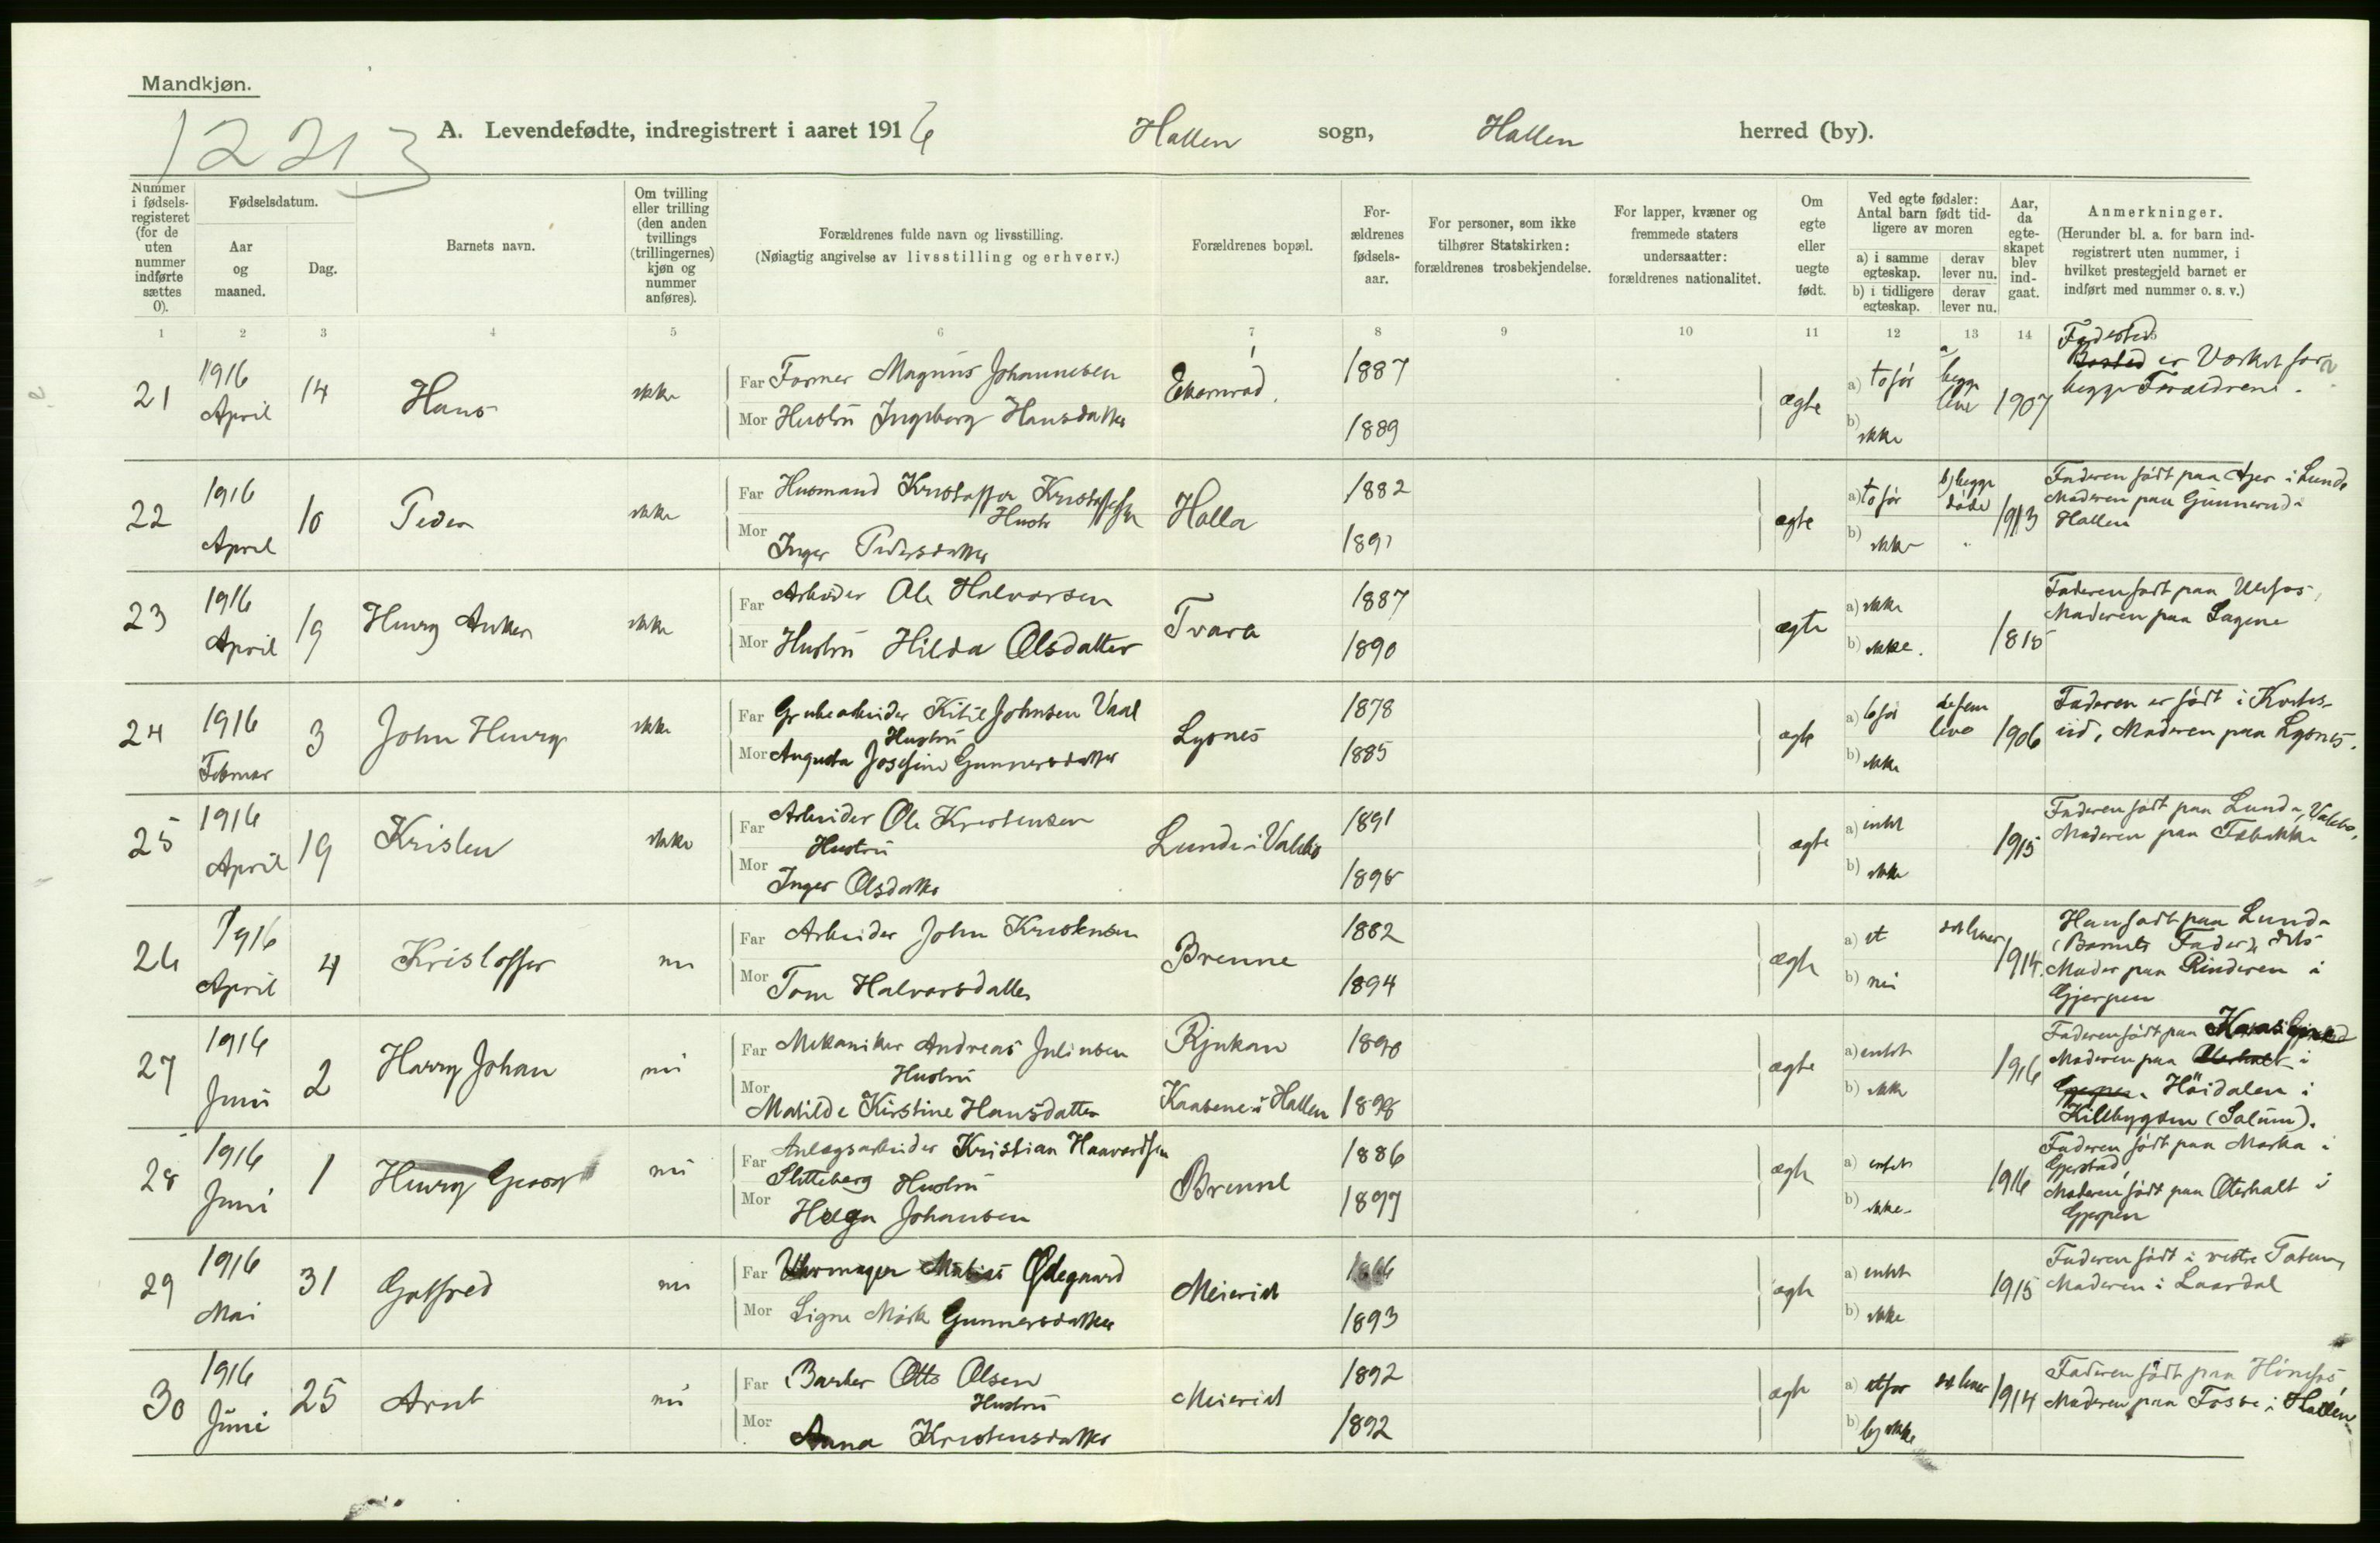 Mandkjøn.
12213
A. Levendefødte, indregistrert i aaret 1916 Hallen sogn, Hallen herred (by).
Nummer i fødsels-registeret (for de uten nummer indførte sættes 0).
Fødselsdatum.
Aar og maaned.
Dag.
Barnets navn.
Om tvilling eller trilling (den anden tvillings (trillingernes) kjøn og nummer anføres).
Forældrenes fulde navn og livsstilling.
(Nøiagtig angivelse av livsstilling og erhverv.)
Forældrenes bopæl.
For-ældrenes fødsels-aar.
For personer, som ikke tilhører Statskirken: forældrenes trosbekjendelse.
For lapper, kvæner og fremmede staters undersaatter: forældrenes nationalitet.
Om egte eller uegte født.
Ved egte fødsler: Antal barn født tid-ligere av moren
a) i samme egteskap.
derav lever nu.
b) i tidligere egteskap.
derav lever nu.
Aar, da egte-skapet blev ind-gaat.
Anmerkninger.
(Herunder bl. a. for barn ind-registrert uten nummer, i hvilket prestegjeld barnet er indført med nummer o. s. v.)
1 2 3 4 5 6 7 8 9 10 11 12 13 14
21 1916 April 14 Hans ikke
Far Former Magnus Johannesen 1887
Mor Hustru Ingeborg Hansdatter 1889
ægte a) to før begge leve b) ikke 1907
Fødested er Værket for begge Forældrene.
22 1916 April 10 Peder ikke
Far Husmand Kristoffer Kristoffersen Halla 1882
Hustr
Mor Inger Pedersdatter 1891
ægte a) to før b) begge døde b) ikke 1913
Faderen født paa i Lunde
Moderen paa Gunnerud i
Hallen
23 1916 April 19 Henry Anker ikke
Far Arbeider Ole Halvorsen Tvara 1887
Mor Hustru Hilda Olsdatter 1890
ægte a) ikke b) ikke. 1815
Faderen født paa Ulefos,
Moderen paa Lagene
24 1916 Februar 3 John Henry ikke
Far Grubearbeider Kitil Johnsen Vaal Lysnes 1878
Hustru
Mor Augusta Josefine Gunnersdatter 1885
ægte a) før leve b) ikke 1906
Faderen er født i Kvites-
eid, Moderen paa Lysnes.
25 1916 April 19 Kristen ikke
Far Arbeider Ole Kristensen Lunde i Valebø 1891
Hustru
Mor Inger Olsdatter 1895
ægte a) intet b) ikke 1915
Faderen født paa Lunde, Valebø,
Moderen paa
26 1916 April 4 Kristoffer nei
Far Arbeider John Kristensen Brenne 1882
Mor Tom Halvorsdatter 1894
ægte a) et som lever b) nei 1914.
Han født paa Lunde
(Barnets Fader), dets
Moder paa Rinderen i
Gjerpen
27 1916 Juni 2 Harry Johan nei
Far Mekaniker Andreas Juliusen Rjukan 1890
Hustru
Mor Matilde Kirstine Hansdatter Kaasene i Hallen 1898
ægte a) intet b) ikke 1916
Faderen født paa Kaas
Moderen paa Oterholt i
Gjerpen. Høidalen i
Kilebygden (Solum).
28 1916 Juni 1 Henry Georg nei
Far Anlægsarbeider Kristian Haavardsen
Slitteberg Hustru Brenne 1886
Mor Helga Johansen 1897
ægte a) intet b) ikke 1916
Faderen født paa Marka i
Gjerstad,
Moderen født paa Oterholt i
Gjerpen
29 1916 Mai 31 Gotfred nei
Far Uhrmager Matias Ødegaard Meieriet
Mor Signe Marie Gunnersdatter 1893
ægte a) intet b) ikke 1915
Faderen født i vestre Toten,
Moderen i Laardal
30 1916 Juni 25 Arnt nei
Far Barber Otto Olsen Meieriet 1892
Hustru
Mor Anna Kristensdatter 1892
ægte a) et før som lever b) ikke 1914
Faderen født paa Hønefos
Moderen paa Fosse i Hallen